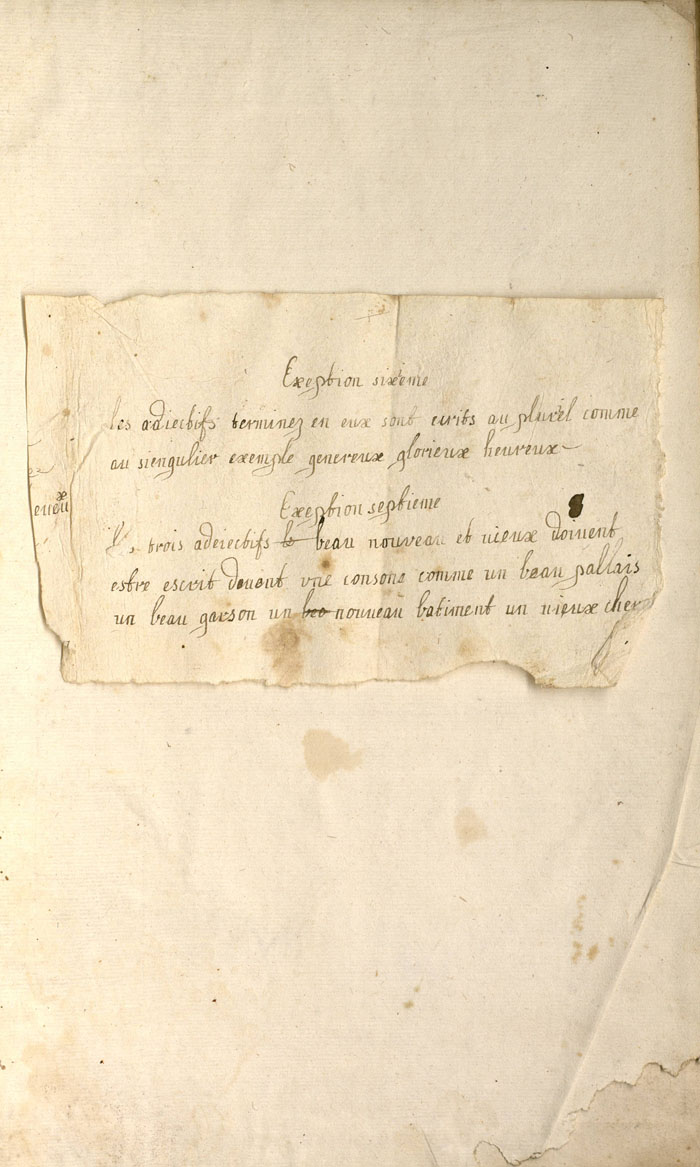 Exeption sixeme
les adiectifs terminez en eux sont ecrits au plurel comme
au siengulier exemple genereux glorieux heureux
Exeption septieme
trois adeiectifs le beau nouveau et vieux doivent
estre escrit devent vne consone comme un beau pallais
un beau garson un bea nouveau batiment un vieux